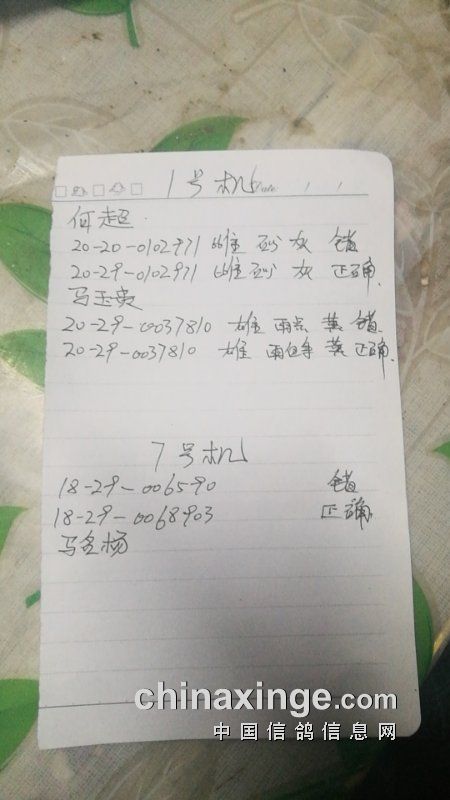 1号机 Date: / /
何超.
20-20-0102971 雌 砂 灰 错
20-29-0102971 雌 砂 灰 正确.
马玉英
20-29-0037810 雄 雨点 黄 错.
20-29-0037810 雄 雨白条 黄 正确.
7号机
18-29-006590 错
18-29-0068903 正确
马名杨
chinaxinge.com
中国信鸽信息网